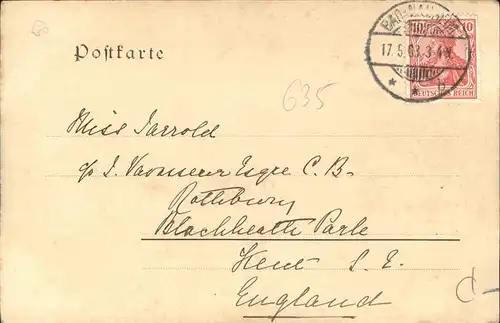 Postkarte
BAD-NAUHEIM
17.5.03.3-4N.
* * b
10
DEUTSCHES REICH
635
Miss Jarrold
c/o J. Esqre C. B.
Rothbury
Blackheath Park
Kent S. E.
England